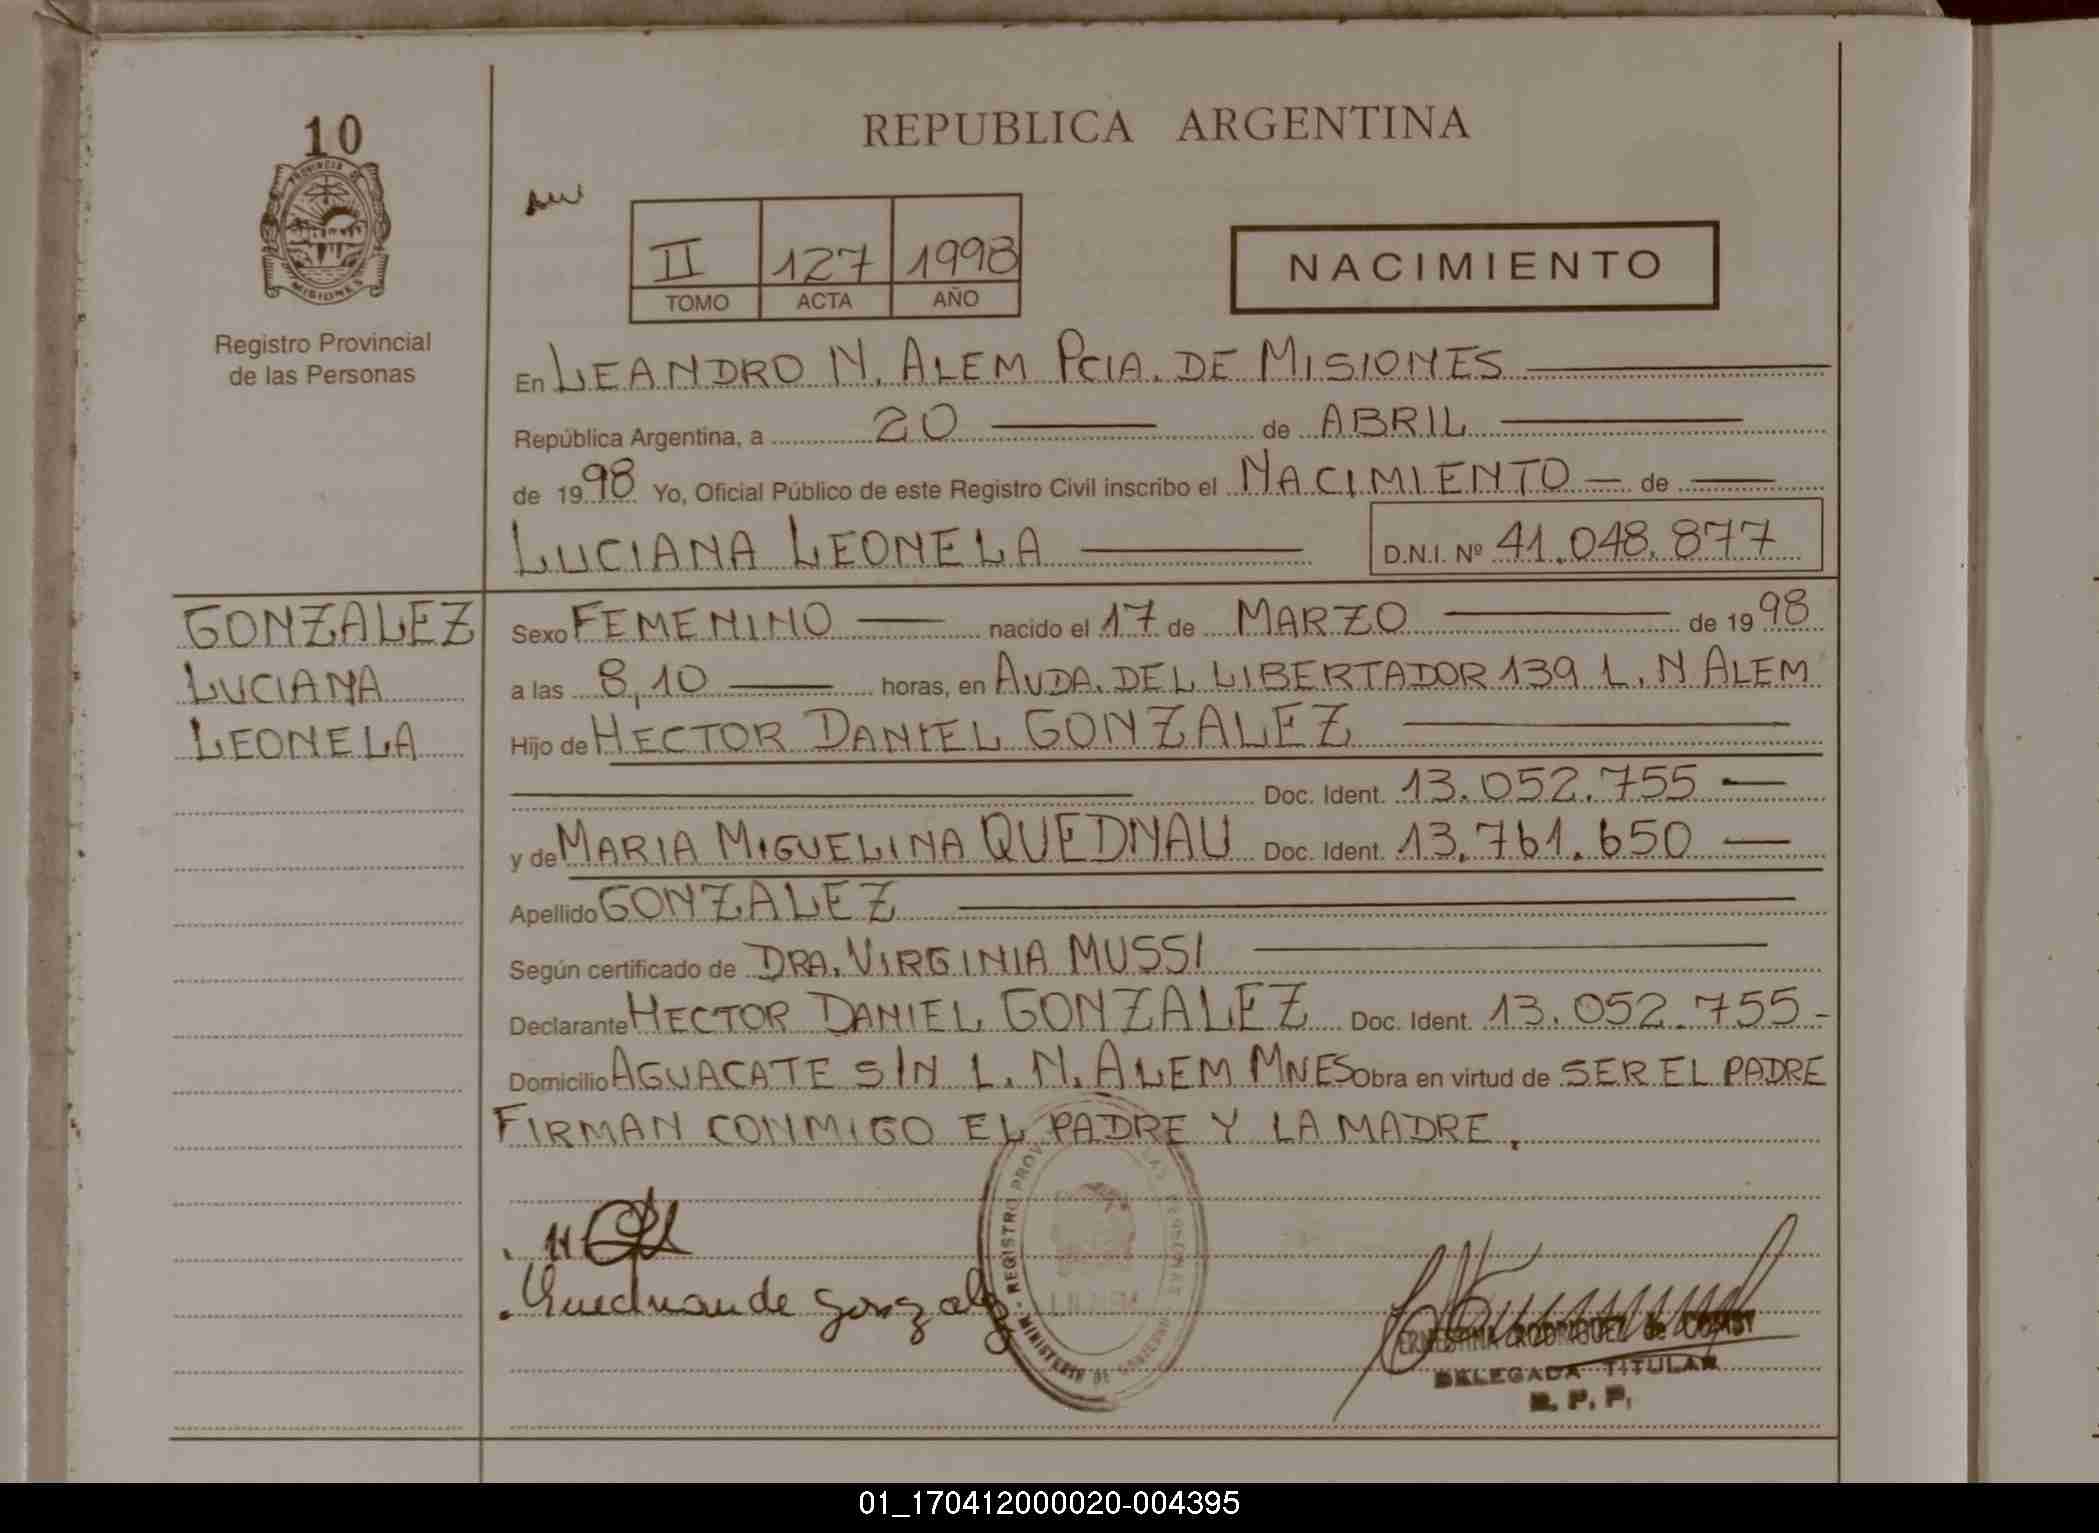 10
PROVINCIA DE
MISIONES
Registro Provincial
de las Personas
REPUBLICA ARGENTINA
II 127 1998
TOMO ACTA AÑO
NACIMIENTO
En LEANDRO N. ALEM PCIA. DE MISIONES
República Argentina, a 20 de ABRIL
de 1998 Yo, Oficial Público de este Registro Civil inscribo el NACIMIENTO de
LUCIANA LEONELA D.N.I. Nº 41.048.877
GONZALEZ
LUCIANA
LEONELA
Sexo FEMENINO nacido el 17 de MARZO de 1998
a las 8,10 horas, en AVDA. DEL LIBERTADOR 139 L. N ALEM
Hijo de HECTOR DANIEL GONZALEZ
Doc. Ident. 13.052.755
y de MARIA MIGUELINA QUEDNAU Doc. Ident. 13.761.650
Apellido GONZALEZ
Según certificado de DRA. VIRGINIA MUSSI
Declarante HECTOR DANIEL GONZALEZ Doc. Ident. 13.052.755-
Domicilio AGUACATE S/N L. N. ALEM MNES Obra en virtud de SER EL PADRE
FIRMAN CONMIGO EL PADRE Y LA MADRE.
Quednau de Gonzalez
REGISTRO PROV
MINISTERIO DE GOBIERNO
ERNESTINA RODRIGUEZ de
DELEGADA TITULAR
R. P. P.
01_170412000020-004395